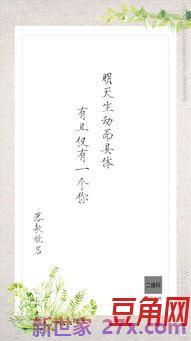 明天生动而具体
有且仅有一个你
落款姓名
二维码
豆角网
新世家 27x.com